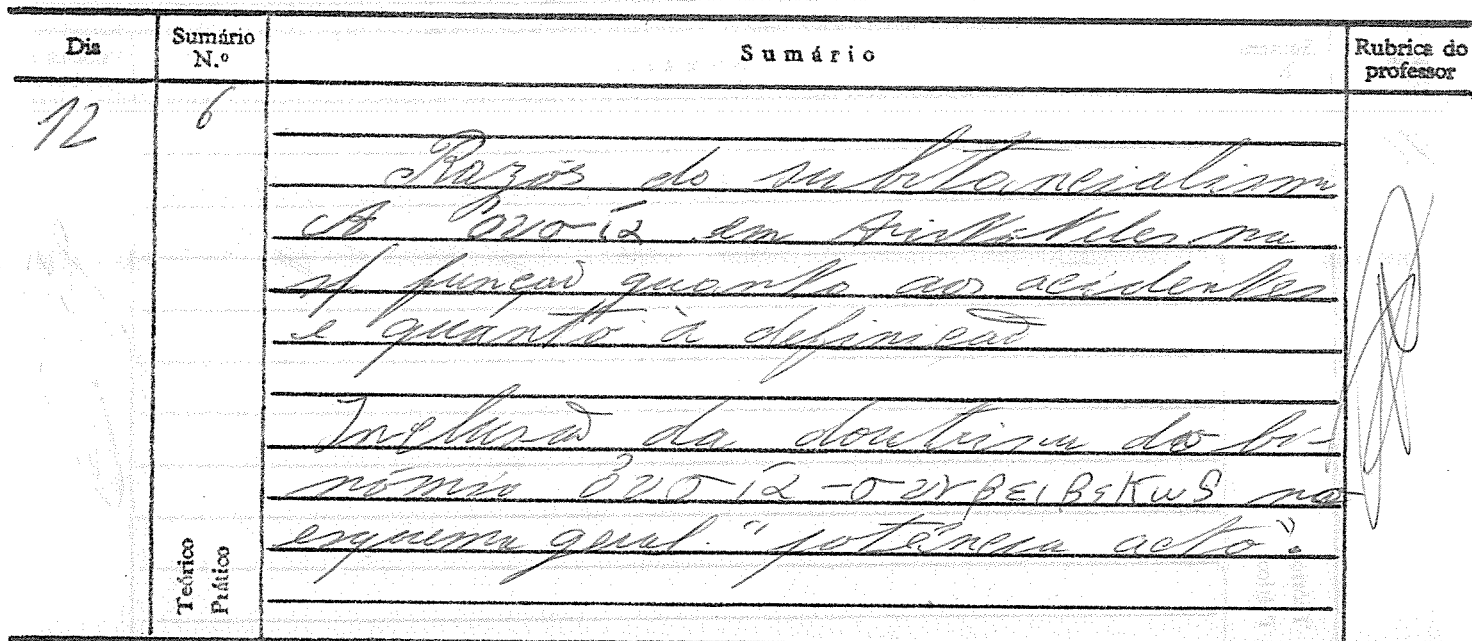 Dia Sumário N.º Sumário Rubrica do professor
12 6
Razões do substancialismo
A οὐσία em Aristóteles na
sª função quanto aos acidentes
e quanto à definição
Inclusão da doutrina do bi-
nómio οὐσία - συνβειβεκως no
esquema geral "potência acto".
Teórico
Prático